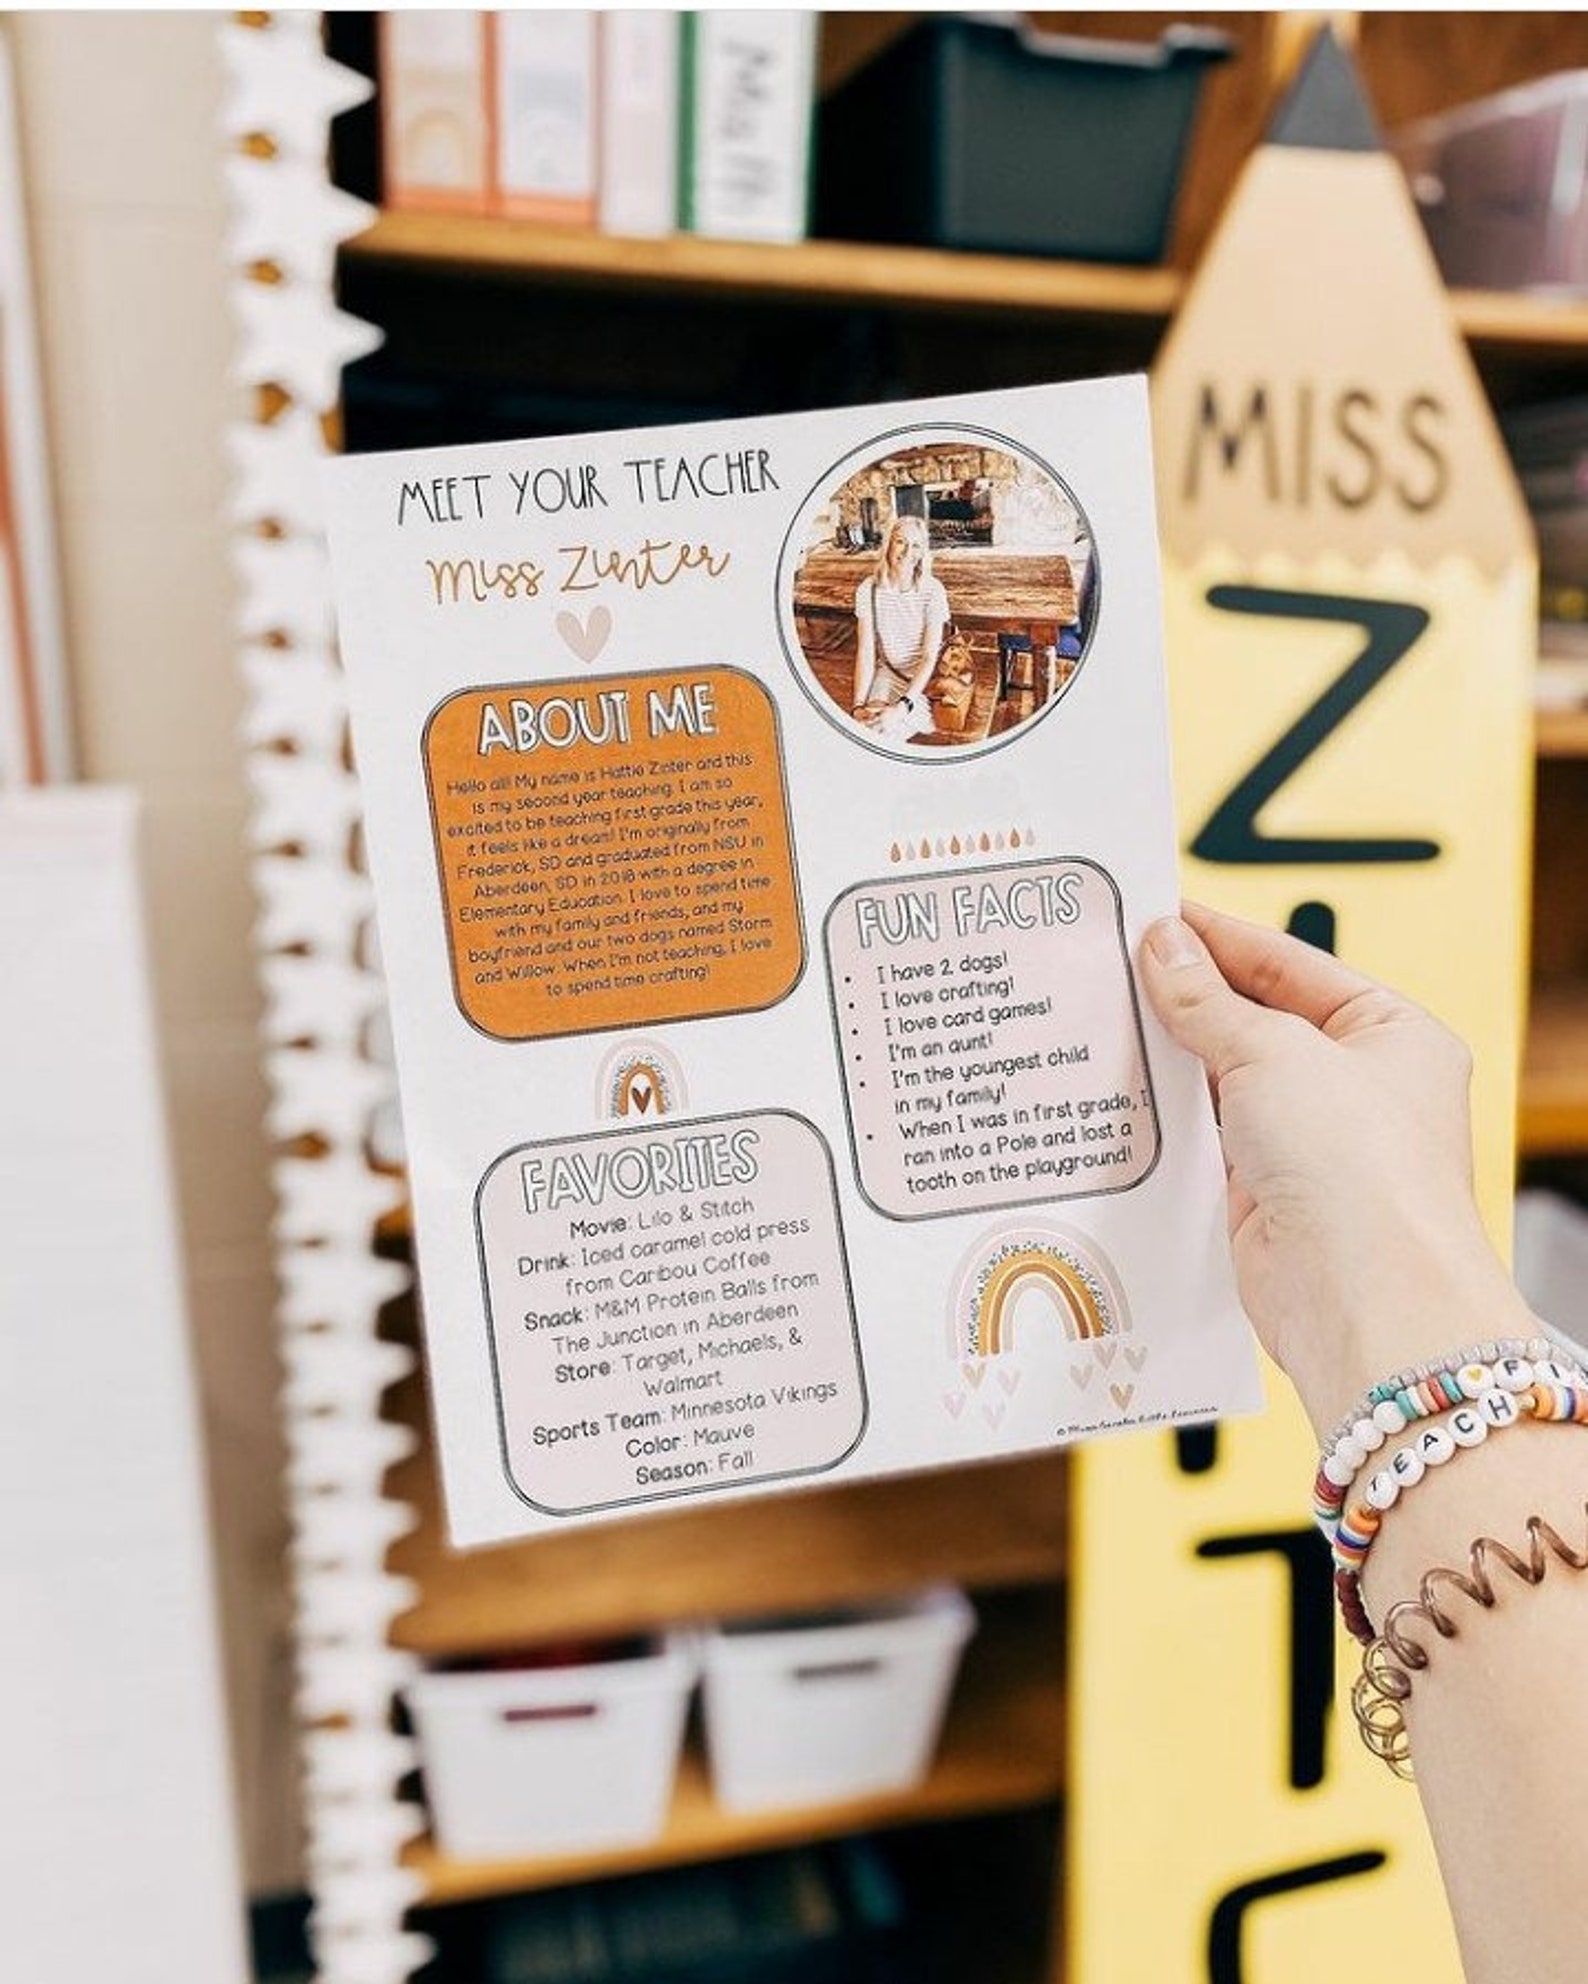 Math
MISS
Z
MEET YOUR TEACHER
Miss Zinter
ABOUT ME
Hello all! My name is Hattie Zinter and this
is my second year teaching. I am so
excited to be teaching first grade this year,
it feels like a dream! I'm originally from
Frederick, SD and graduated from NSU in
Aberdeen, SD in 2018 with a degree in
Elementary Education. I love to spend time
with my family and friends, and my
boyfriend and our two dogs named Storm
and Willow. When I'm not teaching, I love
to spend time crafting!
FAVORITES
Movie: Lilo & Stitch
Drink: Iced caramel cold press
from Caribou Coffee
Snack: M&M Protein Balls from
The Junction in Aberdeen
Store: Target, Michaels, &
Walmart
Sports Team: Minnesota Vikings
Color: Mauve
Season: Fall
FUN FACTS
• I have 2 dogs!
• I love crafting!
• I love card games!
• I'm an aunt!
• I'm the youngest child
in my family!
• When I was in first grade, I
ran into a Pole and lost a
tooth on the playground!
FI
TEACH
T